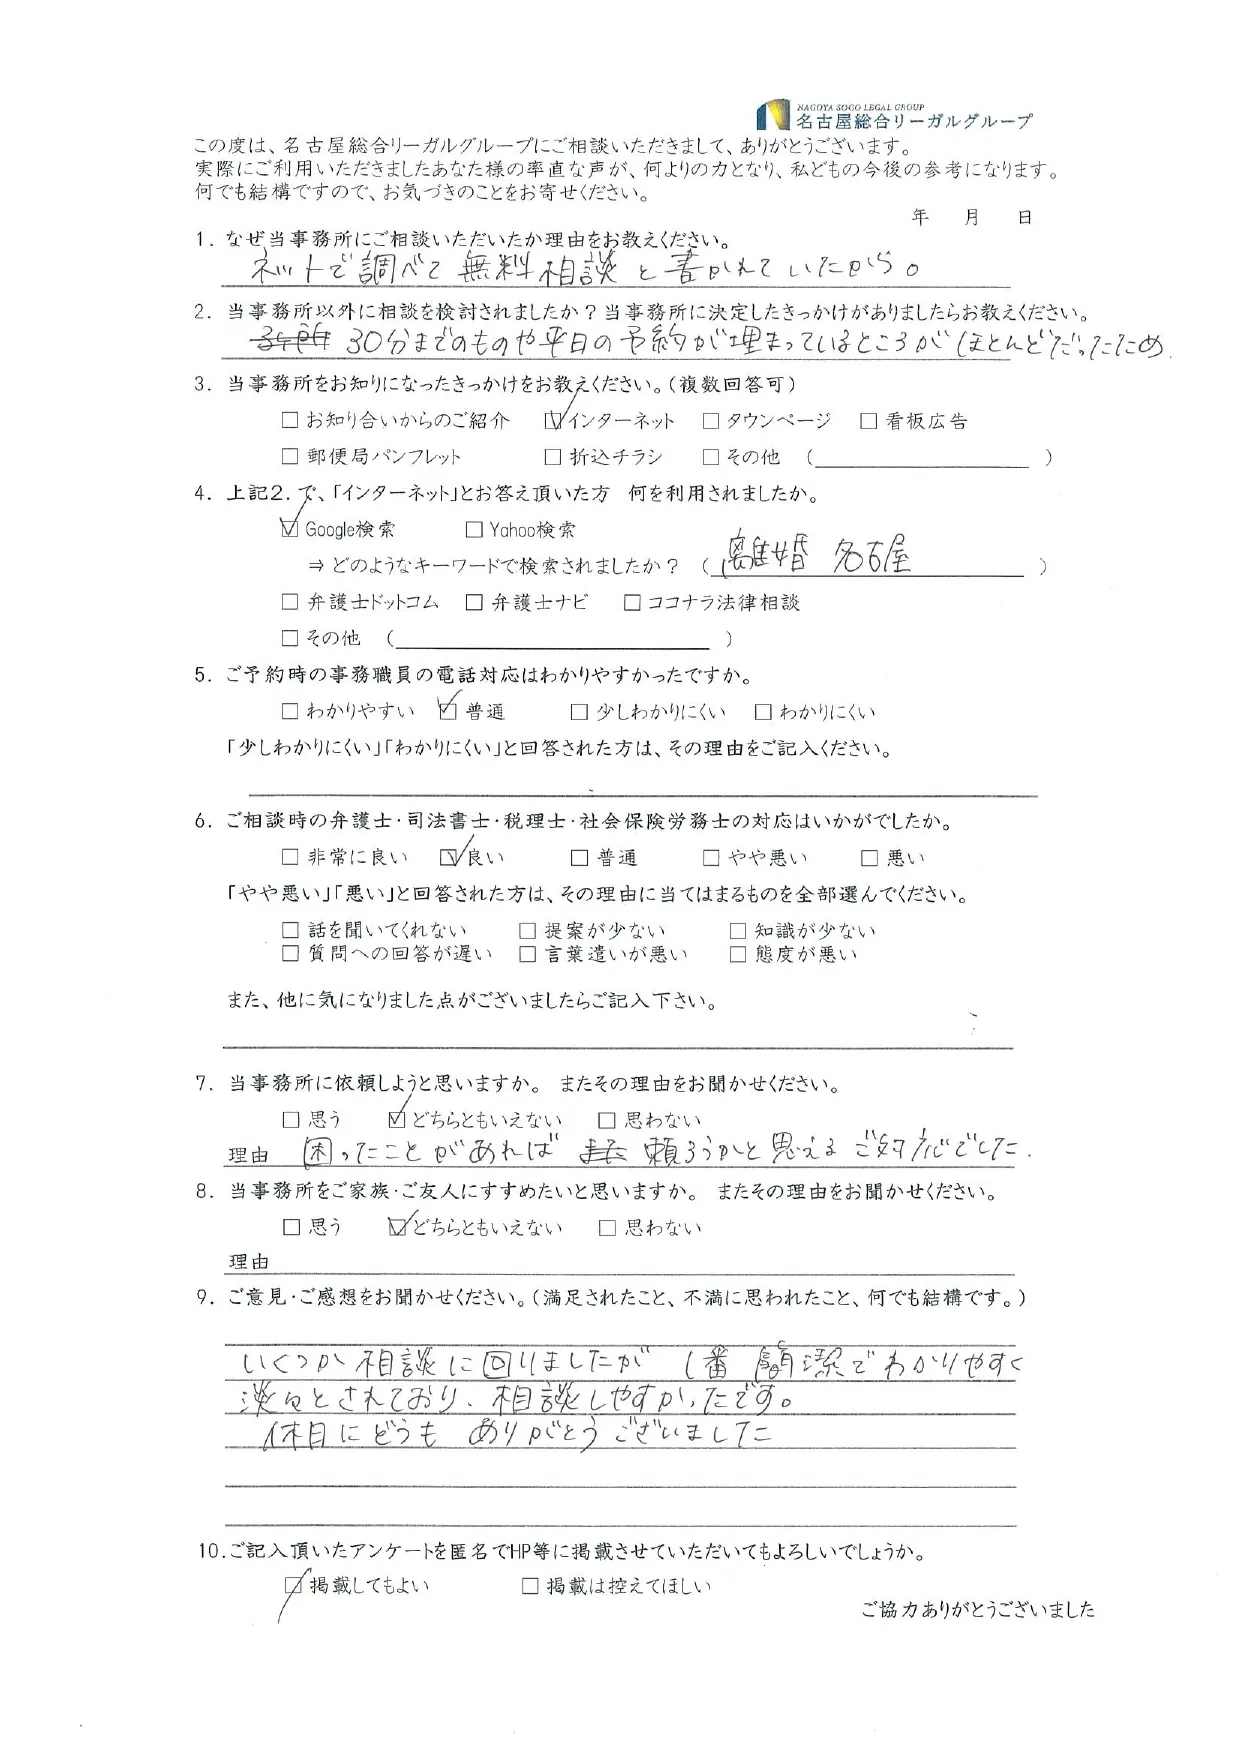 NAGOYA SOGO LEGAL GROUP
名古屋総合リーガルグループ
この度は、名古屋総合リーガルグループにご相談いただきまして、ありがとうございます。
実際にご利用いただきましたあなた様の率直な声が、何よりの力となり、私どもの今後の参考になります。
何でも結構ですので、お気づきのことをお寄せください。
年 月 日
1. なぜ当事務所にご相談いただいたか理由をお教えください。
ネットで調べて無料相談と書かれていたから。
2. 当事務所以外に相談を検討されましたか？当事務所に決定したきっかけがありましたらお教えください。
30分までのものや平日の予約が埋まっているところがほとんどだったため.
3. 当事務所をお知りになったきっかけをお教えください。（複数回答可）
□ お知り合いからのご紹介 ☑ インターネット □ タウンページ □ 看板広告
□ 郵便局パンフレット □ 折込チラシ □ その他 （ ）
4. 上記2．で、「インターネット」とお答え頂いた方 何を利用されましたか。
☑ Google検索 □ Yahoo検索
⇒ どのようなキーワードで検索されましたか？ （ 離婚 名古屋 ）
□ 弁護士ドットコム □ 弁護士ナビ □ ココナラ法律相談
□ その他 （ ）
5. ご予約時の事務職員の電話対応はわかりやすかったですか。
□ わかりやすい ☑ 普通 □ 少しわかりにくい □ わかりにくい
「少しわかりにくい」「わかりにくい」と回答された方は、その理由をご記入ください。
6. ご相談時の弁護士・司法書士・税理士・社会保険労務士の対応はいかがでしたか。
□ 非常に良い ☑ 良い □ 普通 □ やや悪い □ 悪い
「やや悪い」「悪い」と回答された方は、その理由に当てはまるものを全部選んでください。
□ 話を聞いてくれない □ 提案が少ない □ 知識が少ない
□ 質問への回答が遅い □ 言葉遣いが悪い □ 態度が悪い
また、他に気になりました点がございましたらご記入下さい。
7. 当事務所に依頼しようと思いますか。 またその理由をお聞かせください。
□ 思う ☑ どちらともいえない □ 思わない
理由 困ったことがあれば また 頼ろうかと思える ご対応でした.
8. 当事務所をご家族・ご友人にすすめたいと思いますか。 またその理由をお聞かせください。
□ 思う ☑ どちらともいえない □ 思わない
理由
9. ご意見・ご感想をお聞かせください。（満足されたこと、不満に思われたこと、何でも結構です。）
いくつか相談に回りましたが 1番 潔でわかりやすく
淡々とされており、相談しやすかったです。
休日にどうも ありがとうございました
10.ご記入頂いたアンケートを匿名でHP等に掲載させていただいてもよろしいでしょうか。
☑ 掲載してもよい □ 掲載は控えてほしい
ご協力ありがとうございました